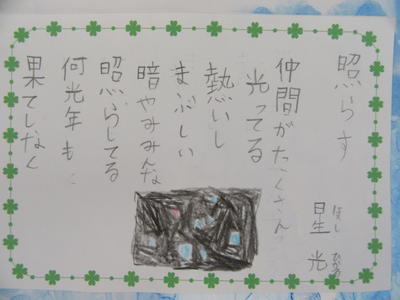 照らす
星 光
ほし ひかる
仲間がたくさん
光ってる
熱いし
まぶしい
暗やみみんな
照らしてる
何光年も
果てしなく